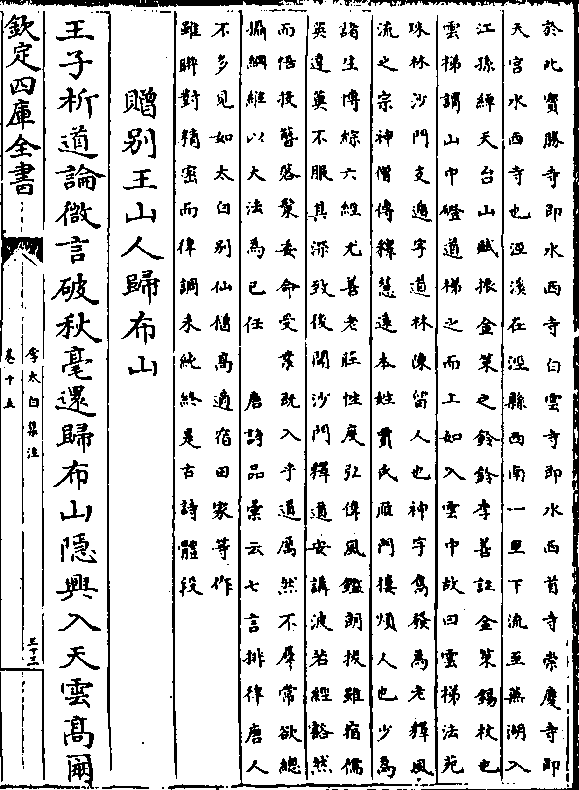 於此寶勝寺即水西寺白雲寺即水西首寺崇慶寺即
天宫水西寺也涇溪在涇縣西南一里下流至蕪湖入
江孫綽天台山賦振金策之鈴鈴李善註金策錫杖也
雲梯謂山中磴道梯之而上如入雲中故曰雲梯法苑
珠林沙門支遁字道林陳留人也神宇雋發為老釋風
流之宗神僧傳釋慧遠本姓賈氏雁門樓煩人也少為
諸生博綜六經尤善老莊性度弘偉風鑑朗拔雖宿儒
英達莫不服其深致後聞沙門釋道安講波若經豁然
而悟投簪落髮委命受業既入乎道厲然不羣常欲總
攝綱維以大法為已任 唐詩品彚云七言排律唐人
不多見如太白别仙僧高適宿田家等作
雖聯對精密而律調未純終是古詩體段
贈别王山人歸布山
王子析道論微言破秋毫還歸布山隱興入天雲高爾
欽定四庫全書
李太白集注
卷十五
三十二